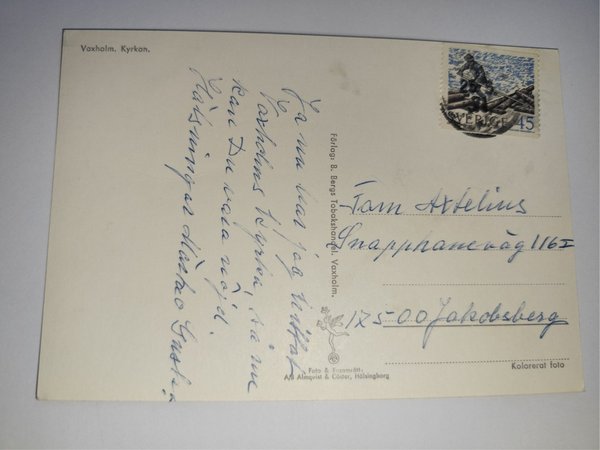 Vaxholm. Kyrkan.
Ja nu har jag hittat
Vaxholms Kyrka, så nu
kan Du vara nöjd.
Hälsningar
Förlag: B. Bergs Tobakshandel, Vaxholm.
SVERIGE 45
Fam Axtelius
Snapphaneväg 116 I
175 00 Jakobsberg
Foto & Ensamrätt:
A/B Almqvist & Cöster, Hälsingborg
Kolorerat foto